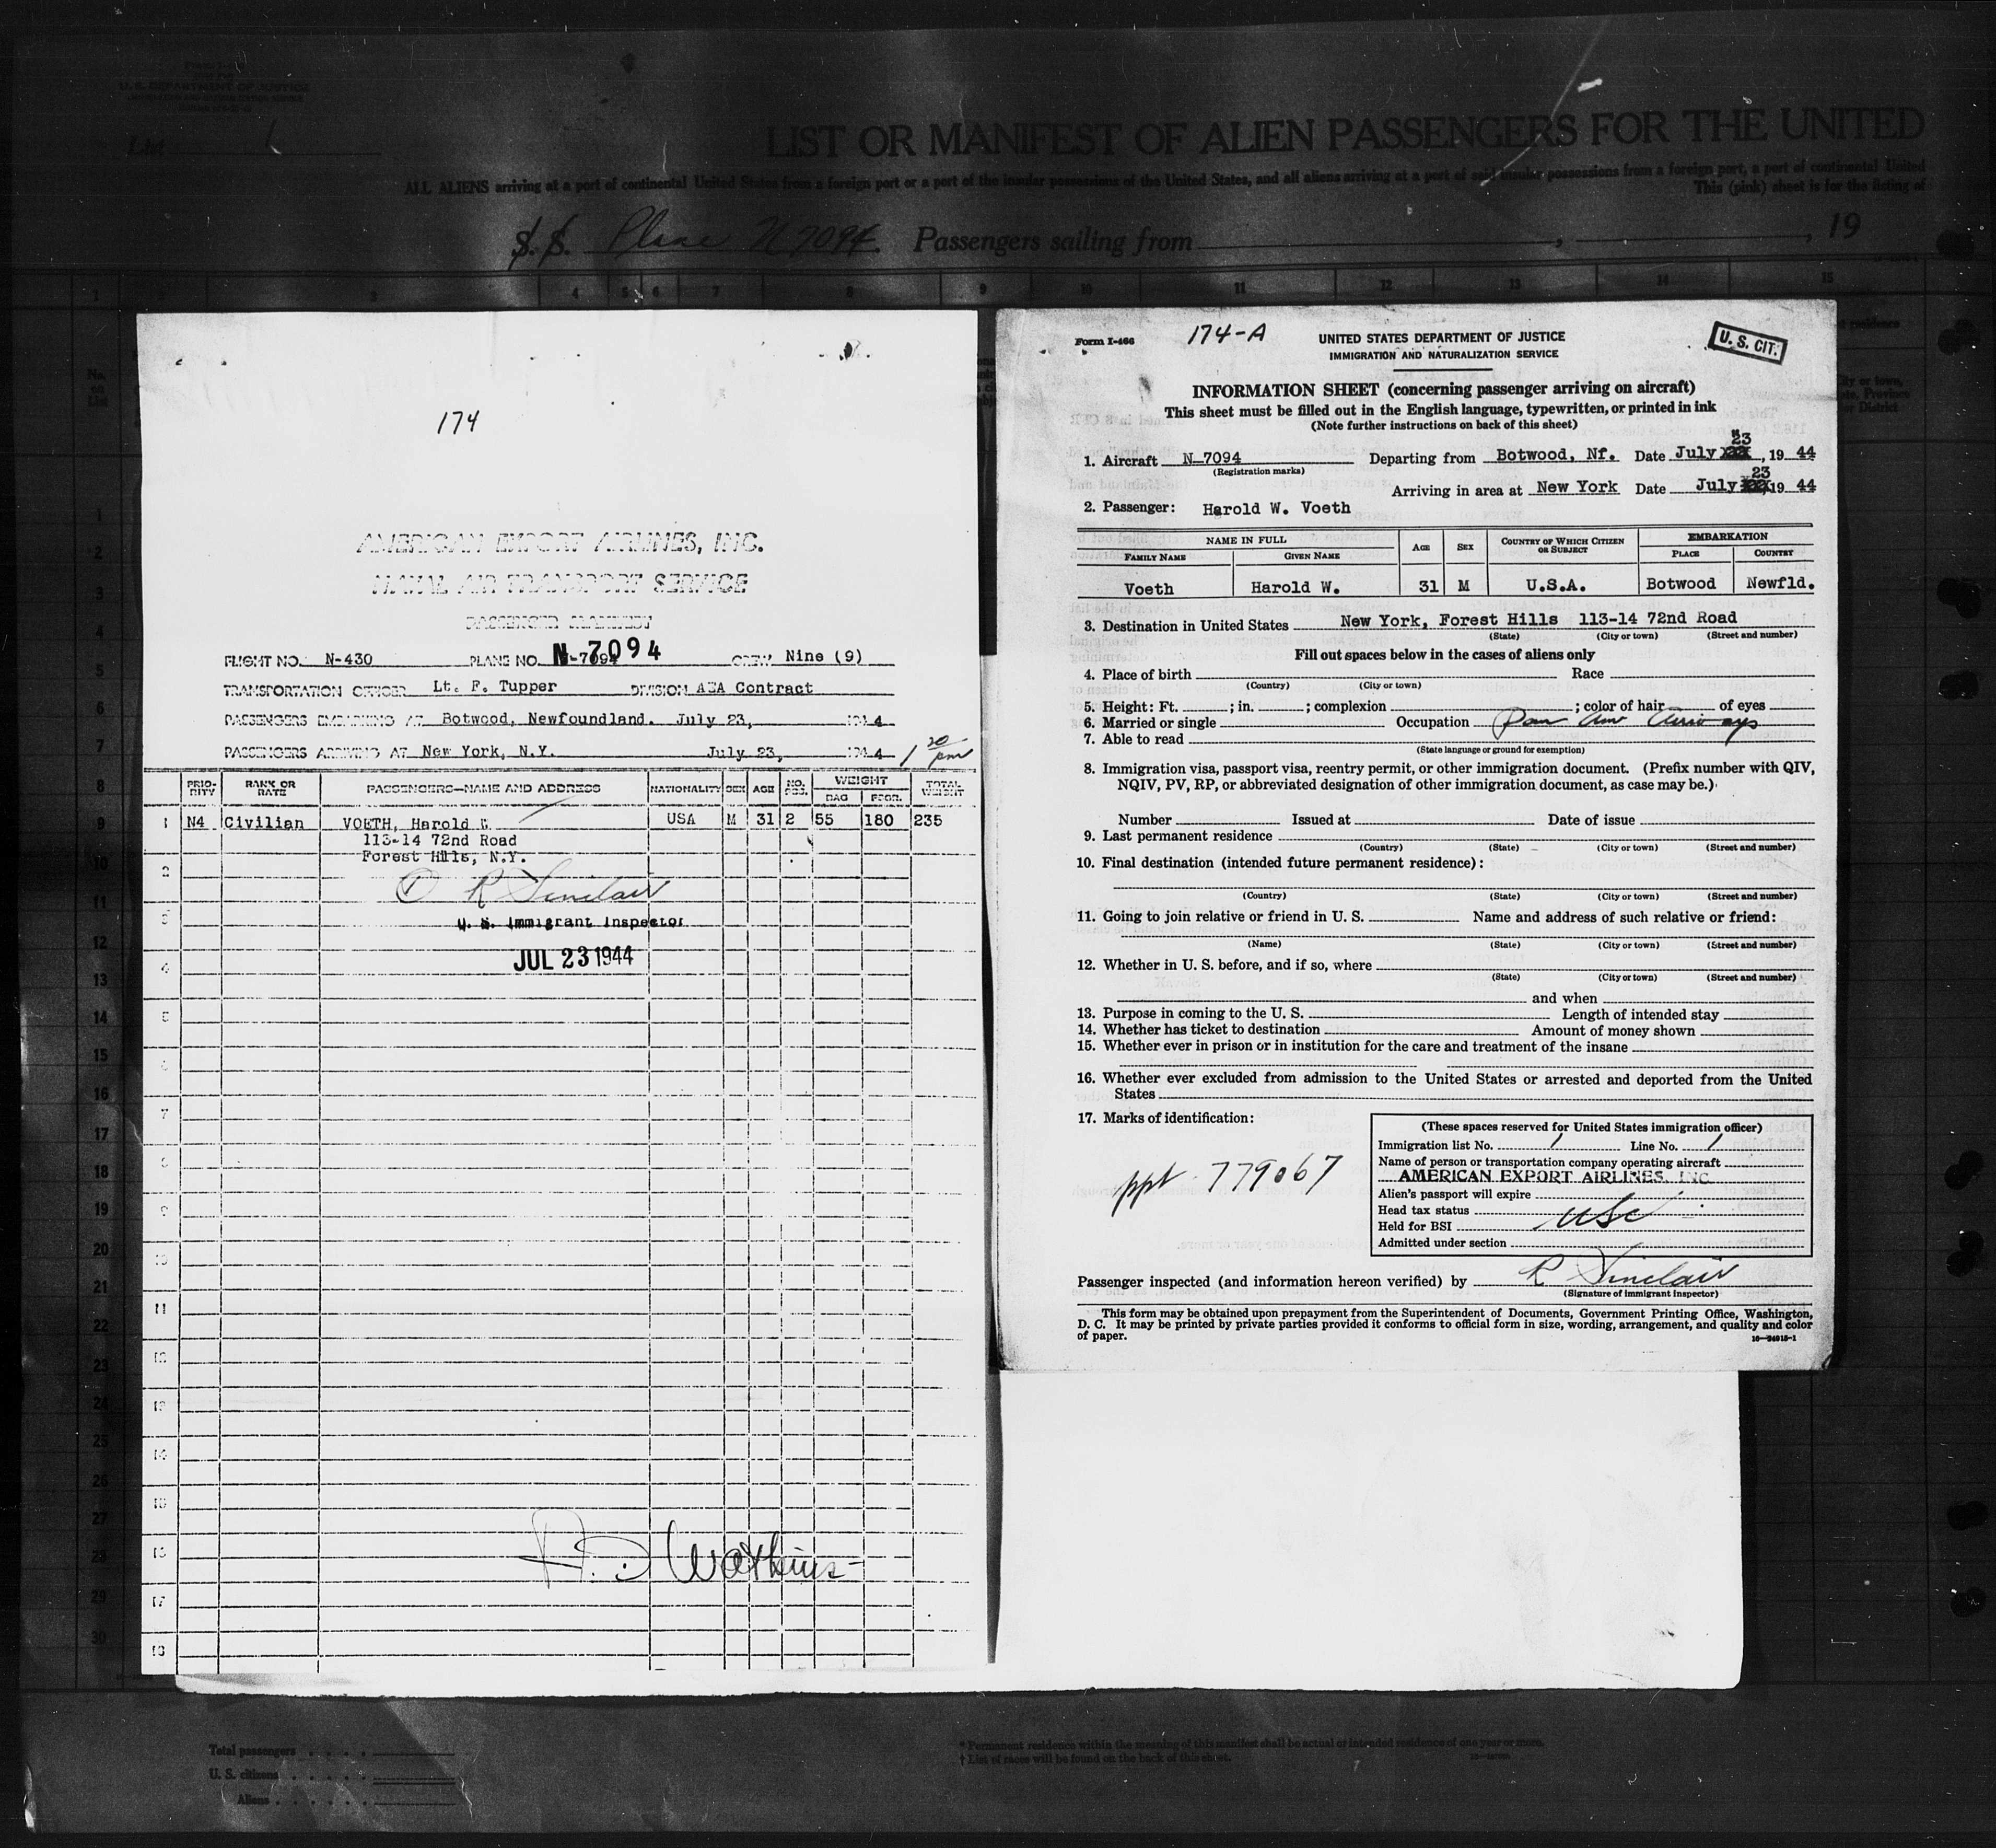 U. S. DEPARTMENT OF JUSTICE
List 1
LIST OR MANIFEST OF ALIEN PASSENGERS FOR THE UNITED
ALL ALIENS arriving at a port of continental United States from a foreign port or a port of the insular possessions of the United States, and all aliens arriving at a port of said insular possessions from a foreign port, a port of continental United
This (pink) sheet is for the listing of
S. S. Plane N 7094 Passengers sailing from , , 19
174
AMERICAN EXPORT AIRLINES, INC.
NAVAL AIR TRANSPORT SERVICE
PASSENGER MANIFEST
FLIGHT NO. N-430 PLANE NO. N-7094 CREW Nine (9)
TRANSPORTATION OFFICER Lt. F. Tupper DIVISION AEA Contract
PASSENGERS EMBARKING AT Botwood, Newfoundland. July 23, 1944
PASSENGERS ARRIVING AT New York, N.Y. July 23, 1944 1 20 pm
PRIORITY RANK OR RATE PASSENGERS—NAME AND ADDRESS NATIONALITY SEX AGE NO. PCS. WEIGHT BAG PSGR. TOTAL WEIGHT
1 N4 Civilian VOETH, Harold W. USA M 31 2 55 180 235
113-14 72nd Road
Forest Hills, N.Y.
2
1 R Sinclair
3 U. S. Immigrant Inspector
4 JUL 23 1944
5
6
7
8
9
10
11
12
13
14
15
16 H. D. Watkins
17
18
Form I-466 174-A UNITED STATES DEPARTMENT OF JUSTICE U. S. CIT.
IMMIGRATION AND NATURALIZATION SERVICE
INFORMATION SHEET (concerning passenger arriving on aircraft)
This sheet must be filled out in the English language, typewritten, or printed in ink
(Note further instructions on back of this sheet)
1. Aircraft N 7094 Departing from Botwood, Nf. Date July 23, 19 44
(Registration marks)
Arriving in area at New York Date July 23 19 44
2. Passenger: Harold W. Voeth
NAME IN FULL AGE SEX COUNTRY OF WHICH CITIZEN OR SUBJECT EMBARKATION
FAMILY NAME GIVEN NAME PLACE COUNTRY
Voeth Harold W. 31 M U.S.A. Botwood Newfld.
3. Destination in United States New York, Forest Hills 113-14 72nd Road
(State) (City or town) (Street and number)
Fill out spaces below in the cases of aliens only
4. Place of birth Race
(Country) (City or town)
5. Height: Ft. ; in. ; complexion ; color of hair of eyes
6. Married or single Occupation Pan Am Airways
7. Able to read
(State language or ground for exemption)
8. Immigration visa, passport visa, reentry permit, or other immigration document. (Prefix number with QIV,
NQIV, PV, RP, or abbreviated designation of other immigration document, as case may be.)
Number Issued at Date of issue
9. Last permanent residence
(Country) (State) (City or town) (Street and number)
10. Final destination (intended future permanent residence):
(Country) (State) (City or town) (Street and number)
11. Going to join relative or friend in U. S. Name and address of such relative or friend:
(Name) (State) (City or town) (Street and number)
12. Whether in U. S. before, and if so, where
(State) (City or town) (Street and number)
and when
13. Purpose in coming to the U. S. Length of intended stay
14. Whether has ticket to destination Amount of money shown
15. Whether ever in prison or in institution for the care and treatment of the insane
16. Whether ever excluded from admission to the United States or arrested and deported from the United
States
17. Marks of identification:
ppt 779067
(These spaces reserved for United States immigration officer)
Immigration list No. 1 Line No. 1
Name of person or transportation company operating aircraft
AMERICAN EXPORT AIRLINES, INC
Alien's passport will expire
Head tax status USC
Held for BSI
Admitted under section
Passenger inspected (and information hereon verified) by R Sinclair
(Signature of immigrant inspector)
This form may be obtained upon prepayment from the Superintendent of Documents, Government Printing Office, Washington,
D. C. It may be printed by private parties provided it conforms to official form in size, wording, arrangement, and quality and color
of paper.
Total passengers
U. S. citizens
Aliens
* Permanent residence within the meaning of this manifest shall be actual or intended residence of one year or more.
† List of races will be found on the back of this sheet.